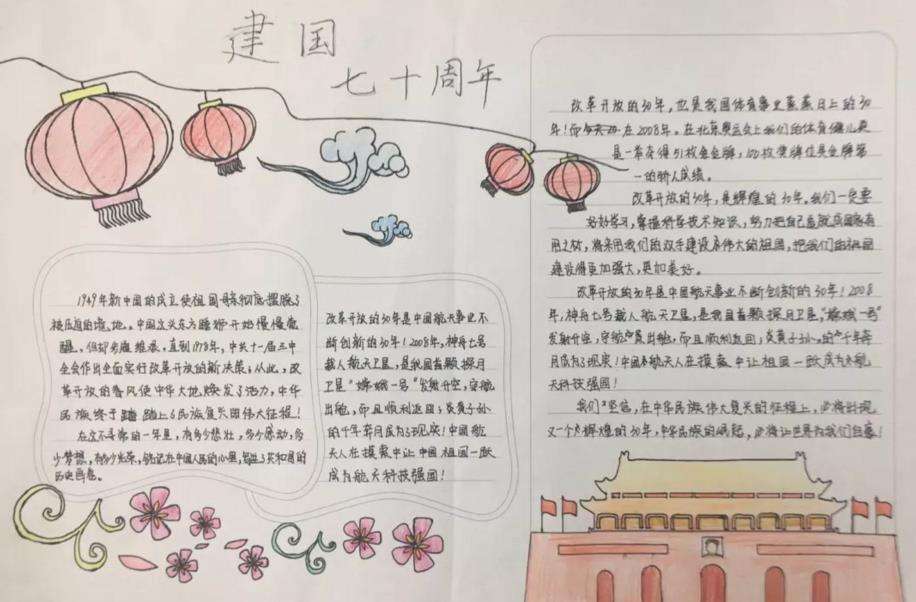 建国
七十周年
1949年新中国的成立使祖国母亲彻底摆脱了
被压迫的境地。中国这头东方睡狮开始慢慢
醒。但步履维艰，直到1978年，中共十一届三中
全会作出全面实行改革开放的新决策；从此，改
革开放的春风使中华大地焕发了活力，中华
民族终于踏上了民族复兴的伟大征程！
在这不寻常的一年里，有多少悲壮，多少感动，多
少梦想，有多少光荣，铭记在中国人民的心里，
历史画卷。
改革开放的30年是中国航天事业不
断创新的30年！2008年，神舟七号
载人航天卫星，是我国首颗探月
卫星"嫦娥一号"发射升空，穿航
出舱，而且顺利返回；炎黄子孙
的千年奔月成为了现实！中国航
天人在摸索中让中国祖国一跃
成为航天科技强国！
改革开放的30年，也是我国体育事业蒸蒸日上的30
年！在2008年。在北京奥运会上我们的体育健儿更
是一举夺得51枚金金牌，100枚奖牌位居金牌第
一的骄人成绩。
改革开放的30年，是辉煌的30年。我们一定要
好好学习，掌握科学技术知识，努力把自己造就成国家有
用之材，将来用我们的双手建设着伟大的祖国，把我们的祖国
建设得更加强大，更加美好。
改革开放的30年是中国航天事业不断创新的30年！2008
年，神舟七号载人航天卫星，是我国首颗探月卫星，"嫦娥一号"
发射升空，穿航出舱，而且顺利返回；炎黄子孙的千年奔
月成为了现实！中国航天人在摸索中让祖国一跃成为航
天科技强国！
我们坚信，在中华民族伟大复兴的征程上，必将出现
又一个辉煌的30年，中华民族的崛起，必将让世界为我们自豪！